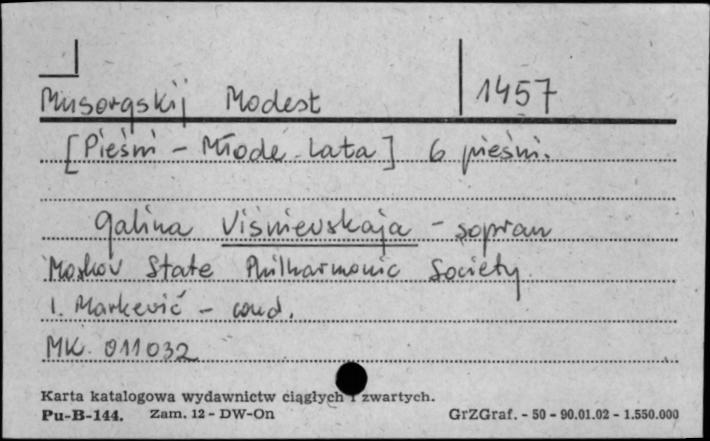 Musorgskij Modest 1457
[Pieśni - Młode lata] 6 pieśni.
Galina Viśnievskaja - sopran
Moskov State Philharmonic Society
I. Markević - cond.
MK. 011032
Karta katalogowa wydawnictw ciągłych i zwartych.
Pu-B-144. Zam. 12 - DW-On GrZGraf. - 50 - 90.01.02 - 1.550.000